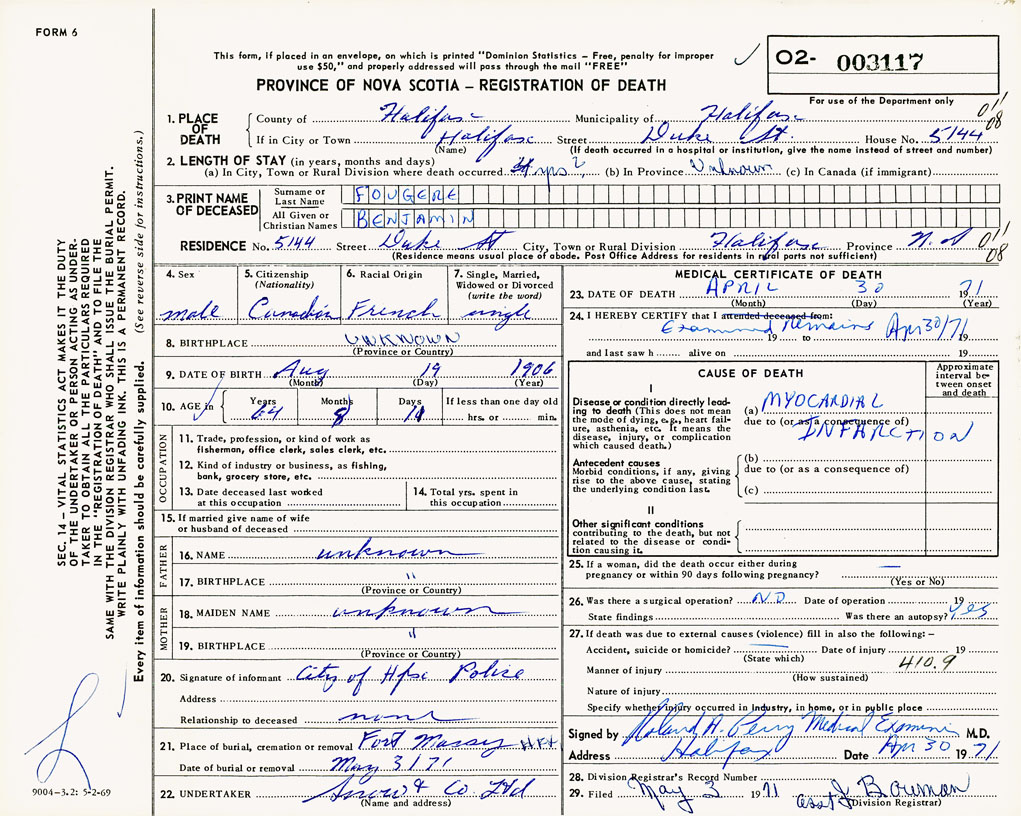 FORM 6
This form, if placed in an envelope, on which is printed "Dominion Statistics – Free, penalty for improper
use $50," and properly addressed will pass through the mail "FREE"
O2- 003117
PROVINCE OF NOVA SCOTIA – REGISTRATION OF DEATH
For use of the Department only
1. PLACE OF DEATH
County of Halifax Municipality of Halifax 011
If in City or Town Halifax Street Duke St. House No. 5144 08
(Name) (If death occurred in a hospital or institution, give the name instead of street and number)
2. LENGTH OF STAY (in years, months and days)
(a) In City, Town or Rural Division where death occurred yrs? (b) In Province Unknown (c) In Canada (if immigrant)
3. PRINT NAME OF DECEASED
Surname or Last Name FOUGERE
All Given or Christian Names BENJAMIN
RESIDENCE No. 5144 Street Duke St City, Town or Rural Division Halifax Province N. S 011
(Residence means usual place of abode. Post Office Address for residents in rural parts not sufficient) 08
4. Sex
male
5. Citizenship
(Nationality)
Canadian
6. Racial Origin
French
7. Single, Married,
Widowed or Divorced
(write the word)
single
8. BIRTHPLACE UNKNOWN
(Province or Country)
9. DATE OF BIRTH Aug 19 1906
(Month) (Day) (Year)
10. AGE in Years Months Days If less than one day old
64 8 11 hrs. or min.
OCCUPATION
11. Trade, profession, or kind of work as
fisherman, office clerk, sales clerk, etc.
12. Kind of industry or business, as fishing,
bank, grocery store, etc.
13. Date deceased last worked
at this occupation
14. Total yrs. spent in
this occupation
15. If married give name of wife
or husband of deceased
FATHER
16. NAME unknown
17. BIRTHPLACE "
(Province or Country)
MOTHER
18. MAIDEN NAME unknown
19. BIRTHPLACE "
(Province or Country)
20. Signature of informant City of Hfx Police
Address
Relationship to deceased none
21. Place of burial, cremation or removal Fort Massey HFX
Date of burial or removal May 3/71
22. UNDERTAKER Snow & Co. Ltd
(Name and address)
MEDICAL CERTIFICATE OF DEATH
23. DATE OF DEATH APRIL 30 1971
(Month) (Day) (Year)
24. I HEREBY CERTIFY that I attended deceased from:
Examined Remains Apr 30/71
19 to 19
and last saw h alive on 19
CAUSE OF DEATH
Approximate
interval be-
tween onset
and death
I
Disease or condition directly lead-
ing to death (This does not mean
the mode of dying, e.g., heart fail-
ure, asthenia, etc. It means the
disease, injury, or complication
which caused death.)
(a) MYOCARDIAL
due to (or as a consequence of)
INFARCTION
Antecedent causes
Morbid conditions, if any, giving
rise to the above cause, stating
the underlying condition last.
(b)
due to (or as a consequence of)
(c)
II
Other significant conditions
contributing to the death, but not
related to the disease or condi-
tion causing it.
25. If a woman, did the death occur either during
pregnancy or within 90 days following pregnancy? —
(Yes or No)
26. Was there a surgical operation? NO Date of operation 19
State findings Was there an autopsy? Yes
27. If death was due to external causes (violence) fill in also the following: –
Accident, suicide or homicide? Date of injury 19
(State which)
Manner of injury 410.9
(How sustained)
Nature of injury
Specify whether injury occurred in industry, in home, or in public place
Signed by Roland A. Perry Medical Examiner M.D.
Address Halifax Date Apr 30 1971
28. Division Registrar's Record Number
29. Filed May 3 1971 asst J Bowman
(Division Registrar)
SEC. 14 – VITAL STATISTICS ACT MAKES IT THE DUTY
OF THE UNDERTAKER OR PERSON ACTING AS UNDER-
TAKER TO OBTAIN ALL THE PARTICULARS REQUIRED
IN THE "REGISTRATION OF DEATH" AND TO FILE THE
SAME WITH THE DIVISION REGISTRAR WHO SHALL ISSUE THE BURIAL PERMIT.
WRITE PLAINLY WITH UNFADING INK. THIS IS A PERMANENT RECORD.
Every item of information should be carefully supplied. (See reverse side for instructions.)
9004-3.2: 5-2-69